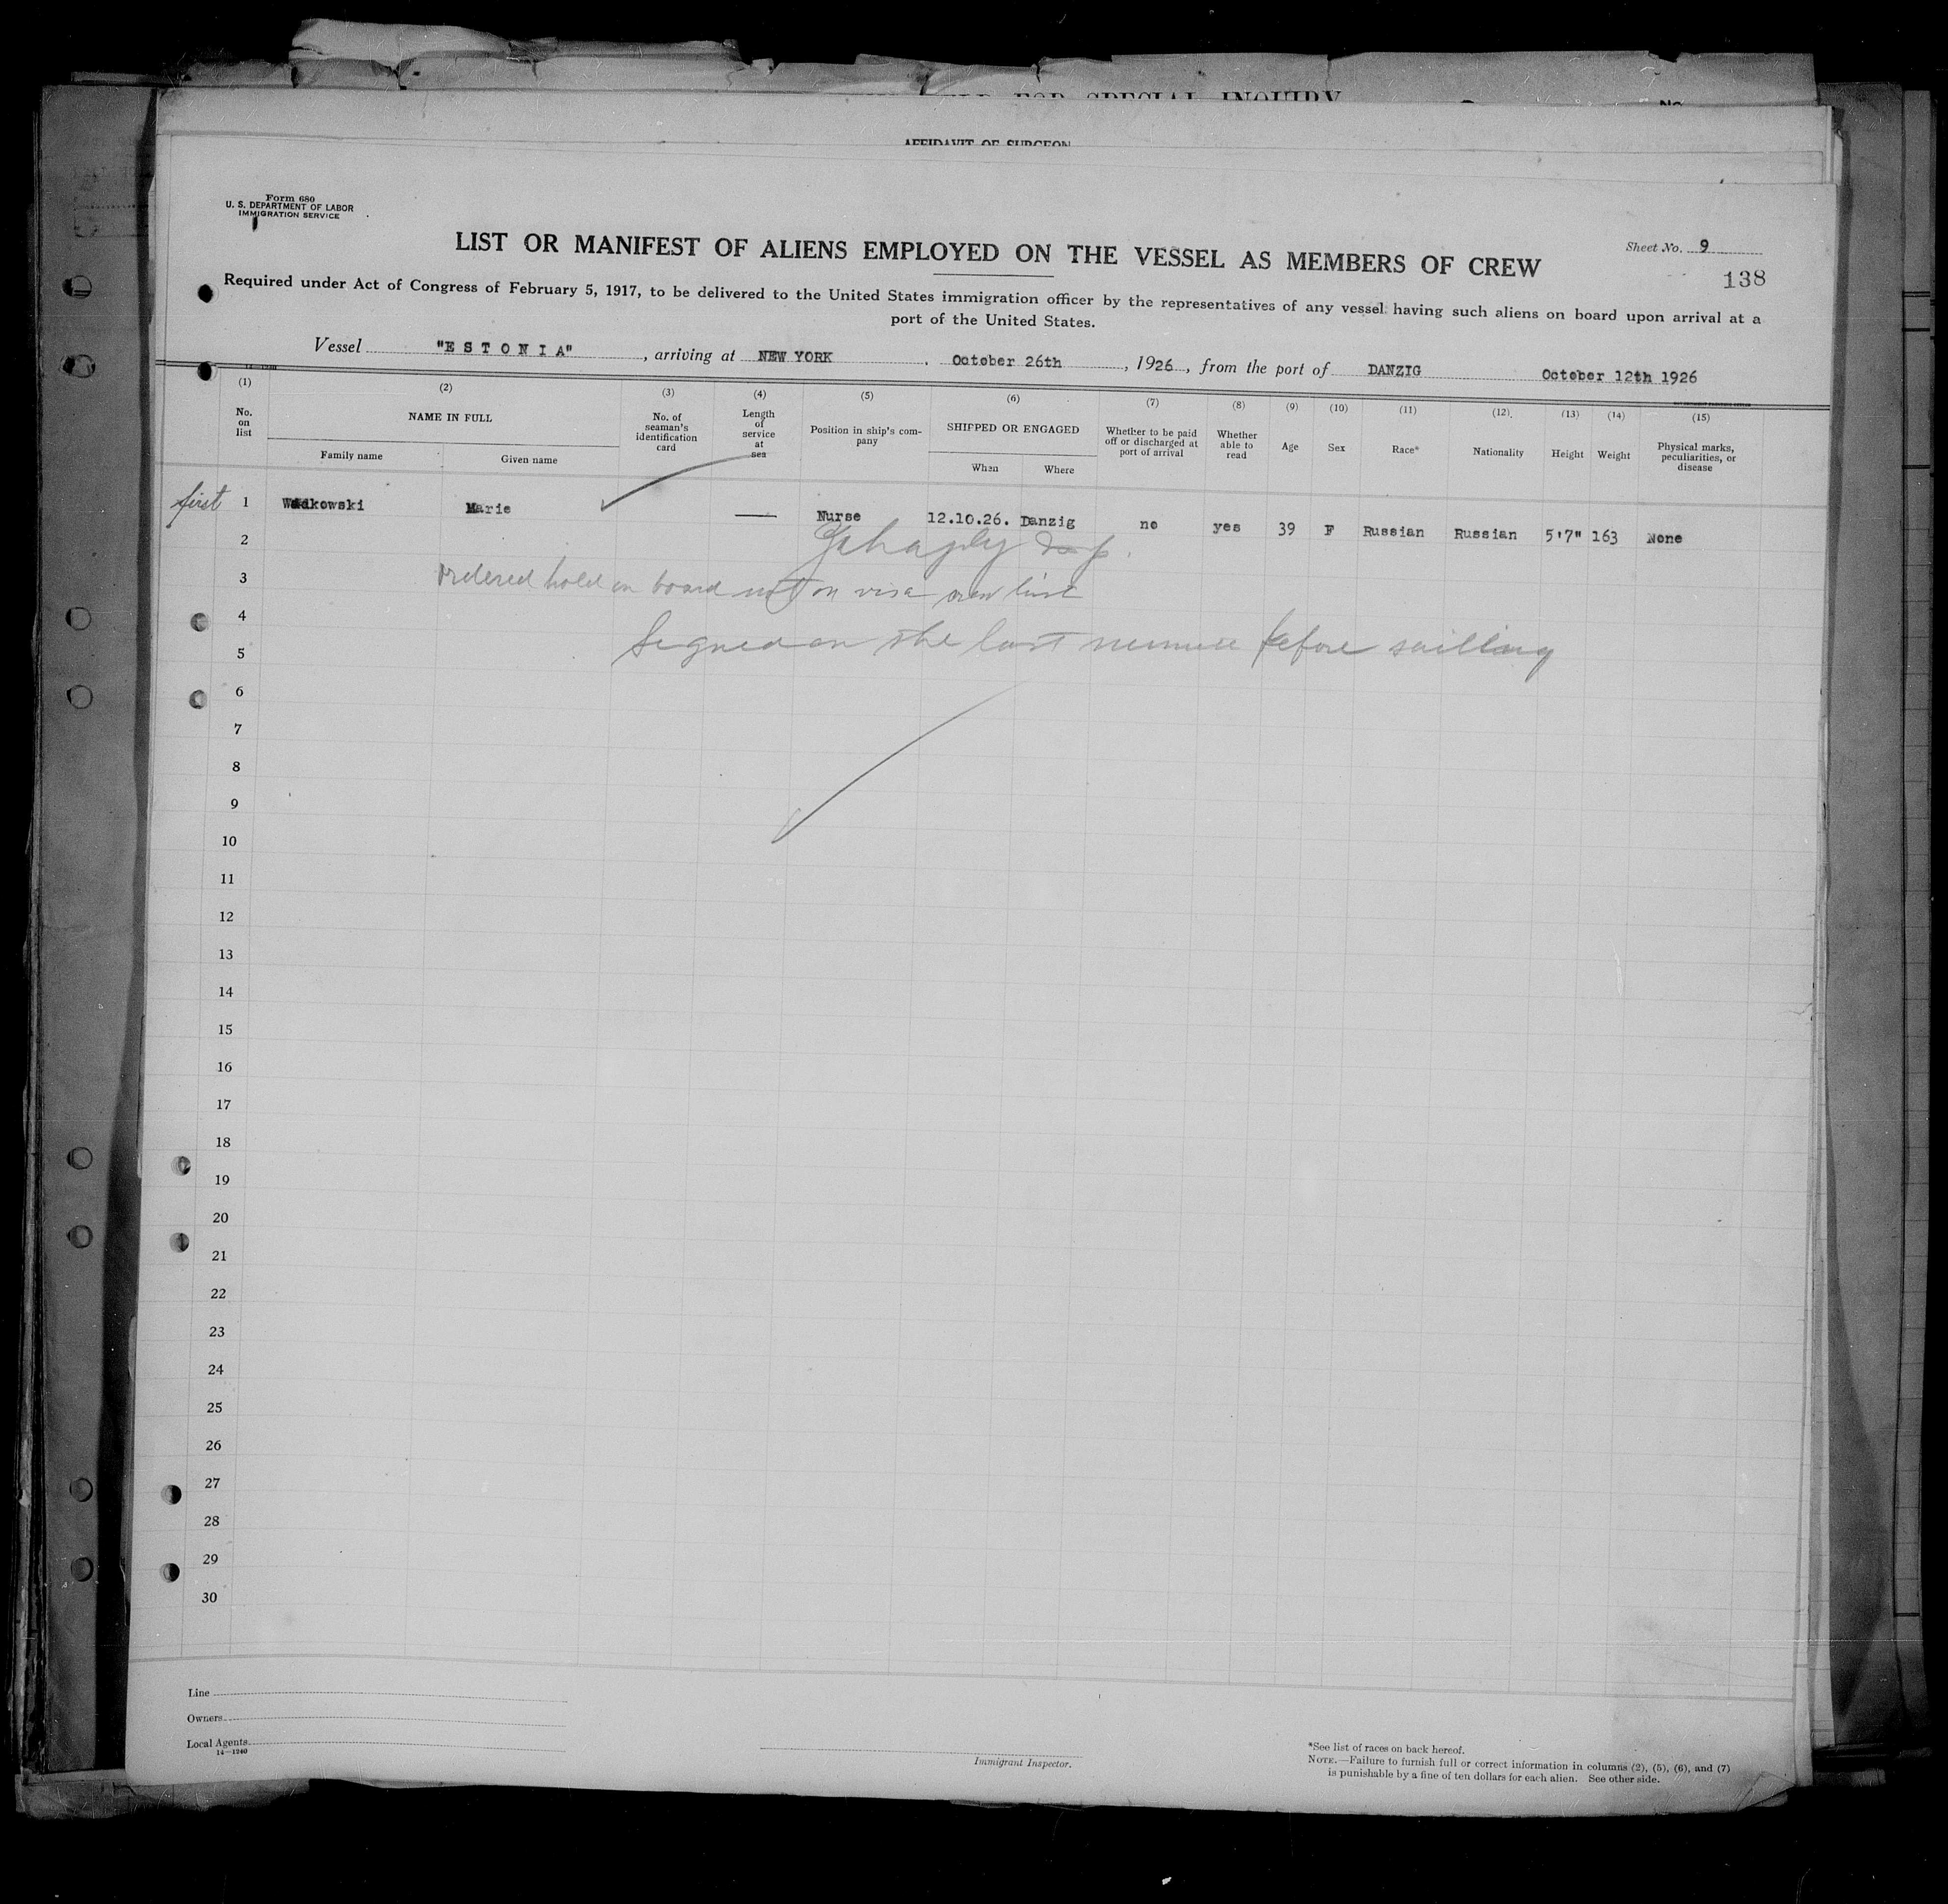 FOR SPECIAL INQUIRY
No.
AFFIDAVIT OF SURGEON
Form 680
U. S. DEPARTMENT OF LABOR
IMMIGRATION SERVICE
LIST OR MANIFEST OF ALIENS EMPLOYED ON THE VESSEL AS MEMBERS OF CREW
Sheet No. 9
138
Required under Act of Congress of February 5, 1917, to be delivered to the United States immigration officer by the representatives of any vessel having such aliens on board upon arrival at a
port of the United States.
Vessel "E S T O N I A", arriving at NEW YORK. October 26th, 1926, from the port of DANZIG October 12th 1926
(1) (2) (3) (4) (5) (6) (7) (8) (9) (10) (11) (12) (13) (14) (15)
No. on list
NAME IN FULL
Family name
Given name
No. of seaman's identification card
Length of service at sea
Position in ship's com-
pany
SHIPPED OR ENGAGED
When
Where
Whether to be paid off or discharged at port of arrival
Whether able to read
Age
Sex
Race*
Nationality
Height
Weight
Physical marks, peculiarities, or disease
first 1 Marie — Nurse 12.10.26. Danzig no yes 39 F Russian Russian 5'7" 163 None
2
3 Ordered hold on board not on visa crew list
4
Signed on the last before sailling
5
6
7
8
9
10
11
12
13
14
15
16
17
18
19
20
21
22
23
24
25
26
27
28
29
30
Line
Owners
Local Agents
14—1240
Immigrant Inspector.
*See list of races on back hereof.
NOTE.—Failure to furnish full or correct information in columns (2), (5), (6), and (7)
is punishable by a fine of ten dollars for each alien. See other side.